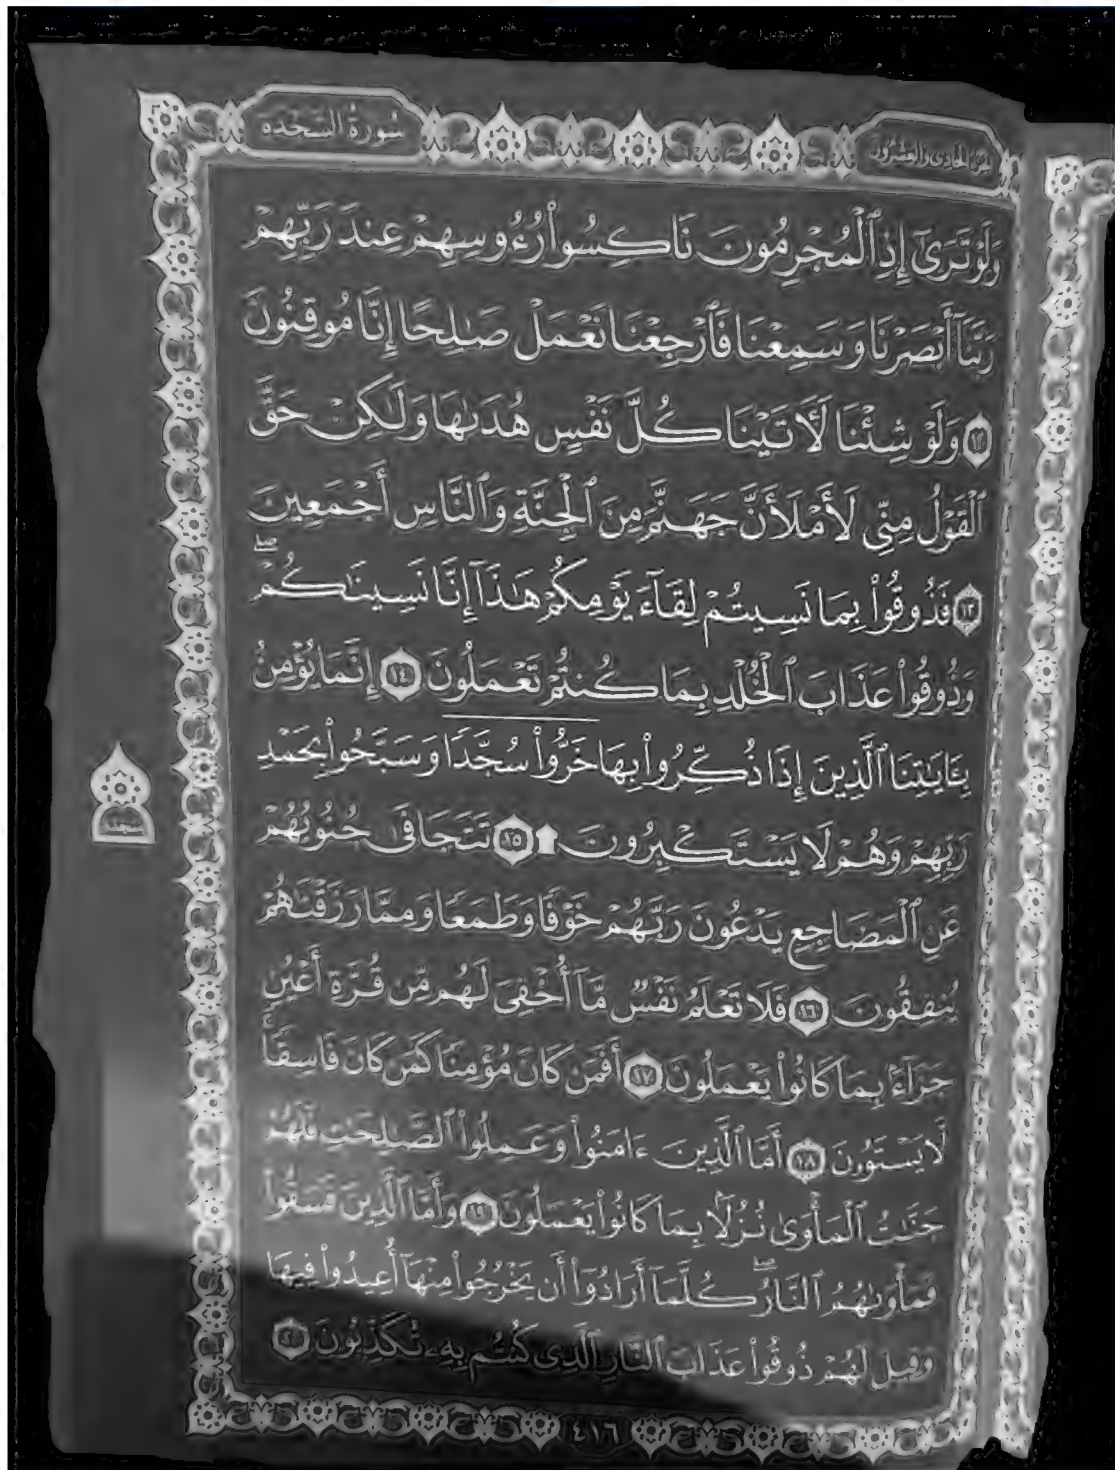 الجزء الحادي والعشرون
سورة السجدة
وَلَوْ تَرَىٰٓ إِذِ ٱلْمُجْرِمُونَ نَاكِسُوا۟ رُءُوسِهِمْ عِندَ رَبِّهِمْ
رَبَّنَآ أَبْصَرْنَا وَسَمِعْنَا فَٱرْجِعْنَا نَعْمَلْ صَٰلِحًا إِنَّا مُوقِنُونَ
١٢ وَلَوْ شِئْنَا لَءَاتَيْنَا كُلَّ نَفْسٍ هُدَىٰهَا وَلَٰكِنْ حَقَّ
ٱلْقَوْلُ مِنِّى لَأَمْلَأَنَّ جَهَنَّمَ مِنَ ٱلْجِنَّةِ وَٱلنَّاسِ أَجْمَعِينَ
١٣ فَذُوقُوا۟ بِمَا نَسِيتُمْ لِقَآءَ يَوْمِكُمْ هَٰذَآ إِنَّا نَسِينَٰكُمْ ۖ
وَذُوقُوا۟ عَذَابَ ٱلْخُلْدِ بِمَا كُنتُمْ تَعْمَلُونَ ١٤ إِنَّمَا يُؤْمِنُ
بِـَٔايَٰتِنَا ٱلَّذِينَ إِذَا ذُكِّرُوا۟ بِهَا خَرُّوا۟ سُجَّدًا وَسَبَّحُوا۟ بِحَمْدِ
رَبِّهِمْ وَهُمْ لَا يَسْتَكْبِرُونَ ١٥ تَتَجَافَىٰ جُنُوبُهُمْ
سجدة
عَنِ ٱلْمَضَاجِعِ يَدْعُونَ رَبَّهُمْ خَوْفًا وَطَمَعًا وَمِمَّا رَزَقْنَٰهُمْ
يُنفِقُونَ ١٦ فَلَا تَعْلَمُ نَفْسٌ مَّآ أُخْفِىَ لَهُم مِّن قُرَّةِ أَعْيُنٍ
جَزَآءًۢ بِمَا كَانُوا۟ يَعْمَلُونَ ١٧ أَفَمَن كَانَ مُؤْمِنًا كَمَن كَانَ فَاسِقًا ۚ
لَّا يَسْتَوُۥنَ ١٨ أَمَّا ٱلَّذِينَ ءَامَنُوا۟ وَعَمِلُوا۟ ٱلصَّٰلِحَٰتِ فَلَهُمْ
جَنَّٰتُ ٱلْمَأْوَىٰ نُزُلًۢا بِمَا كَانُوا۟ يَعْمَلُونَ ١٩ وَأَمَّا ٱلَّذِينَ فَسَقُوا۟
فَمَأْوَىٰهُمُ ٱلنَّارُ ۖ كُلَّمَآ أَرَادُوٓا۟ أَن يَخْرُجُوا۟ مِنْهَآ أُعِيدُوا۟ فِيهَا
وَقِيلَ لَهُمْ ذُوقُوا۟ عَذَابَ ٱلنَّارِ ٱلَّذِى كُنتُم بِهِۦ تُكَذِّبُونَ ٢٠
٤١٦